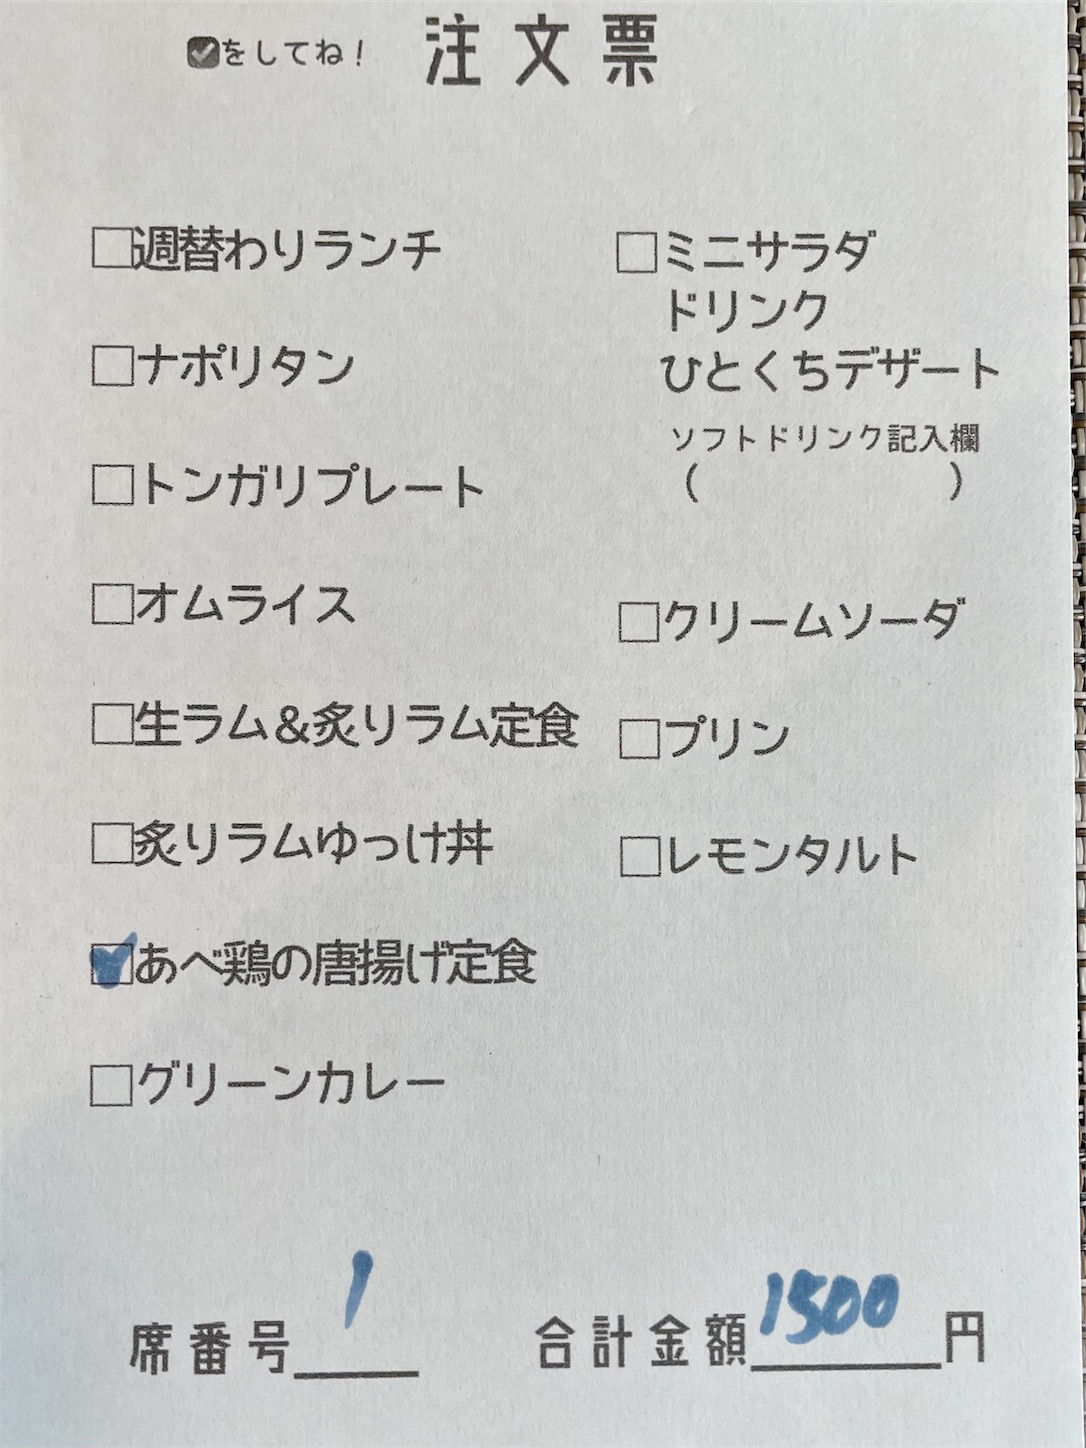 ☑をしてね！ 注文票
□週替わりランチ
□ナポリタン
□トンガリプレート
□オムライス
□生ラム＆炙りラム定食
□炙りラムゆっけ丼
☑あべ鶏の唐揚げ定食
□グリーンカレー
□ミニサラダ
ドリンク
ひとくちデザート
ソフトドリンク記入欄
（　　　　　　　　）
□クリームソーダ
□プリン
□レモンタルト
席番号 1 合計金額 1500 円